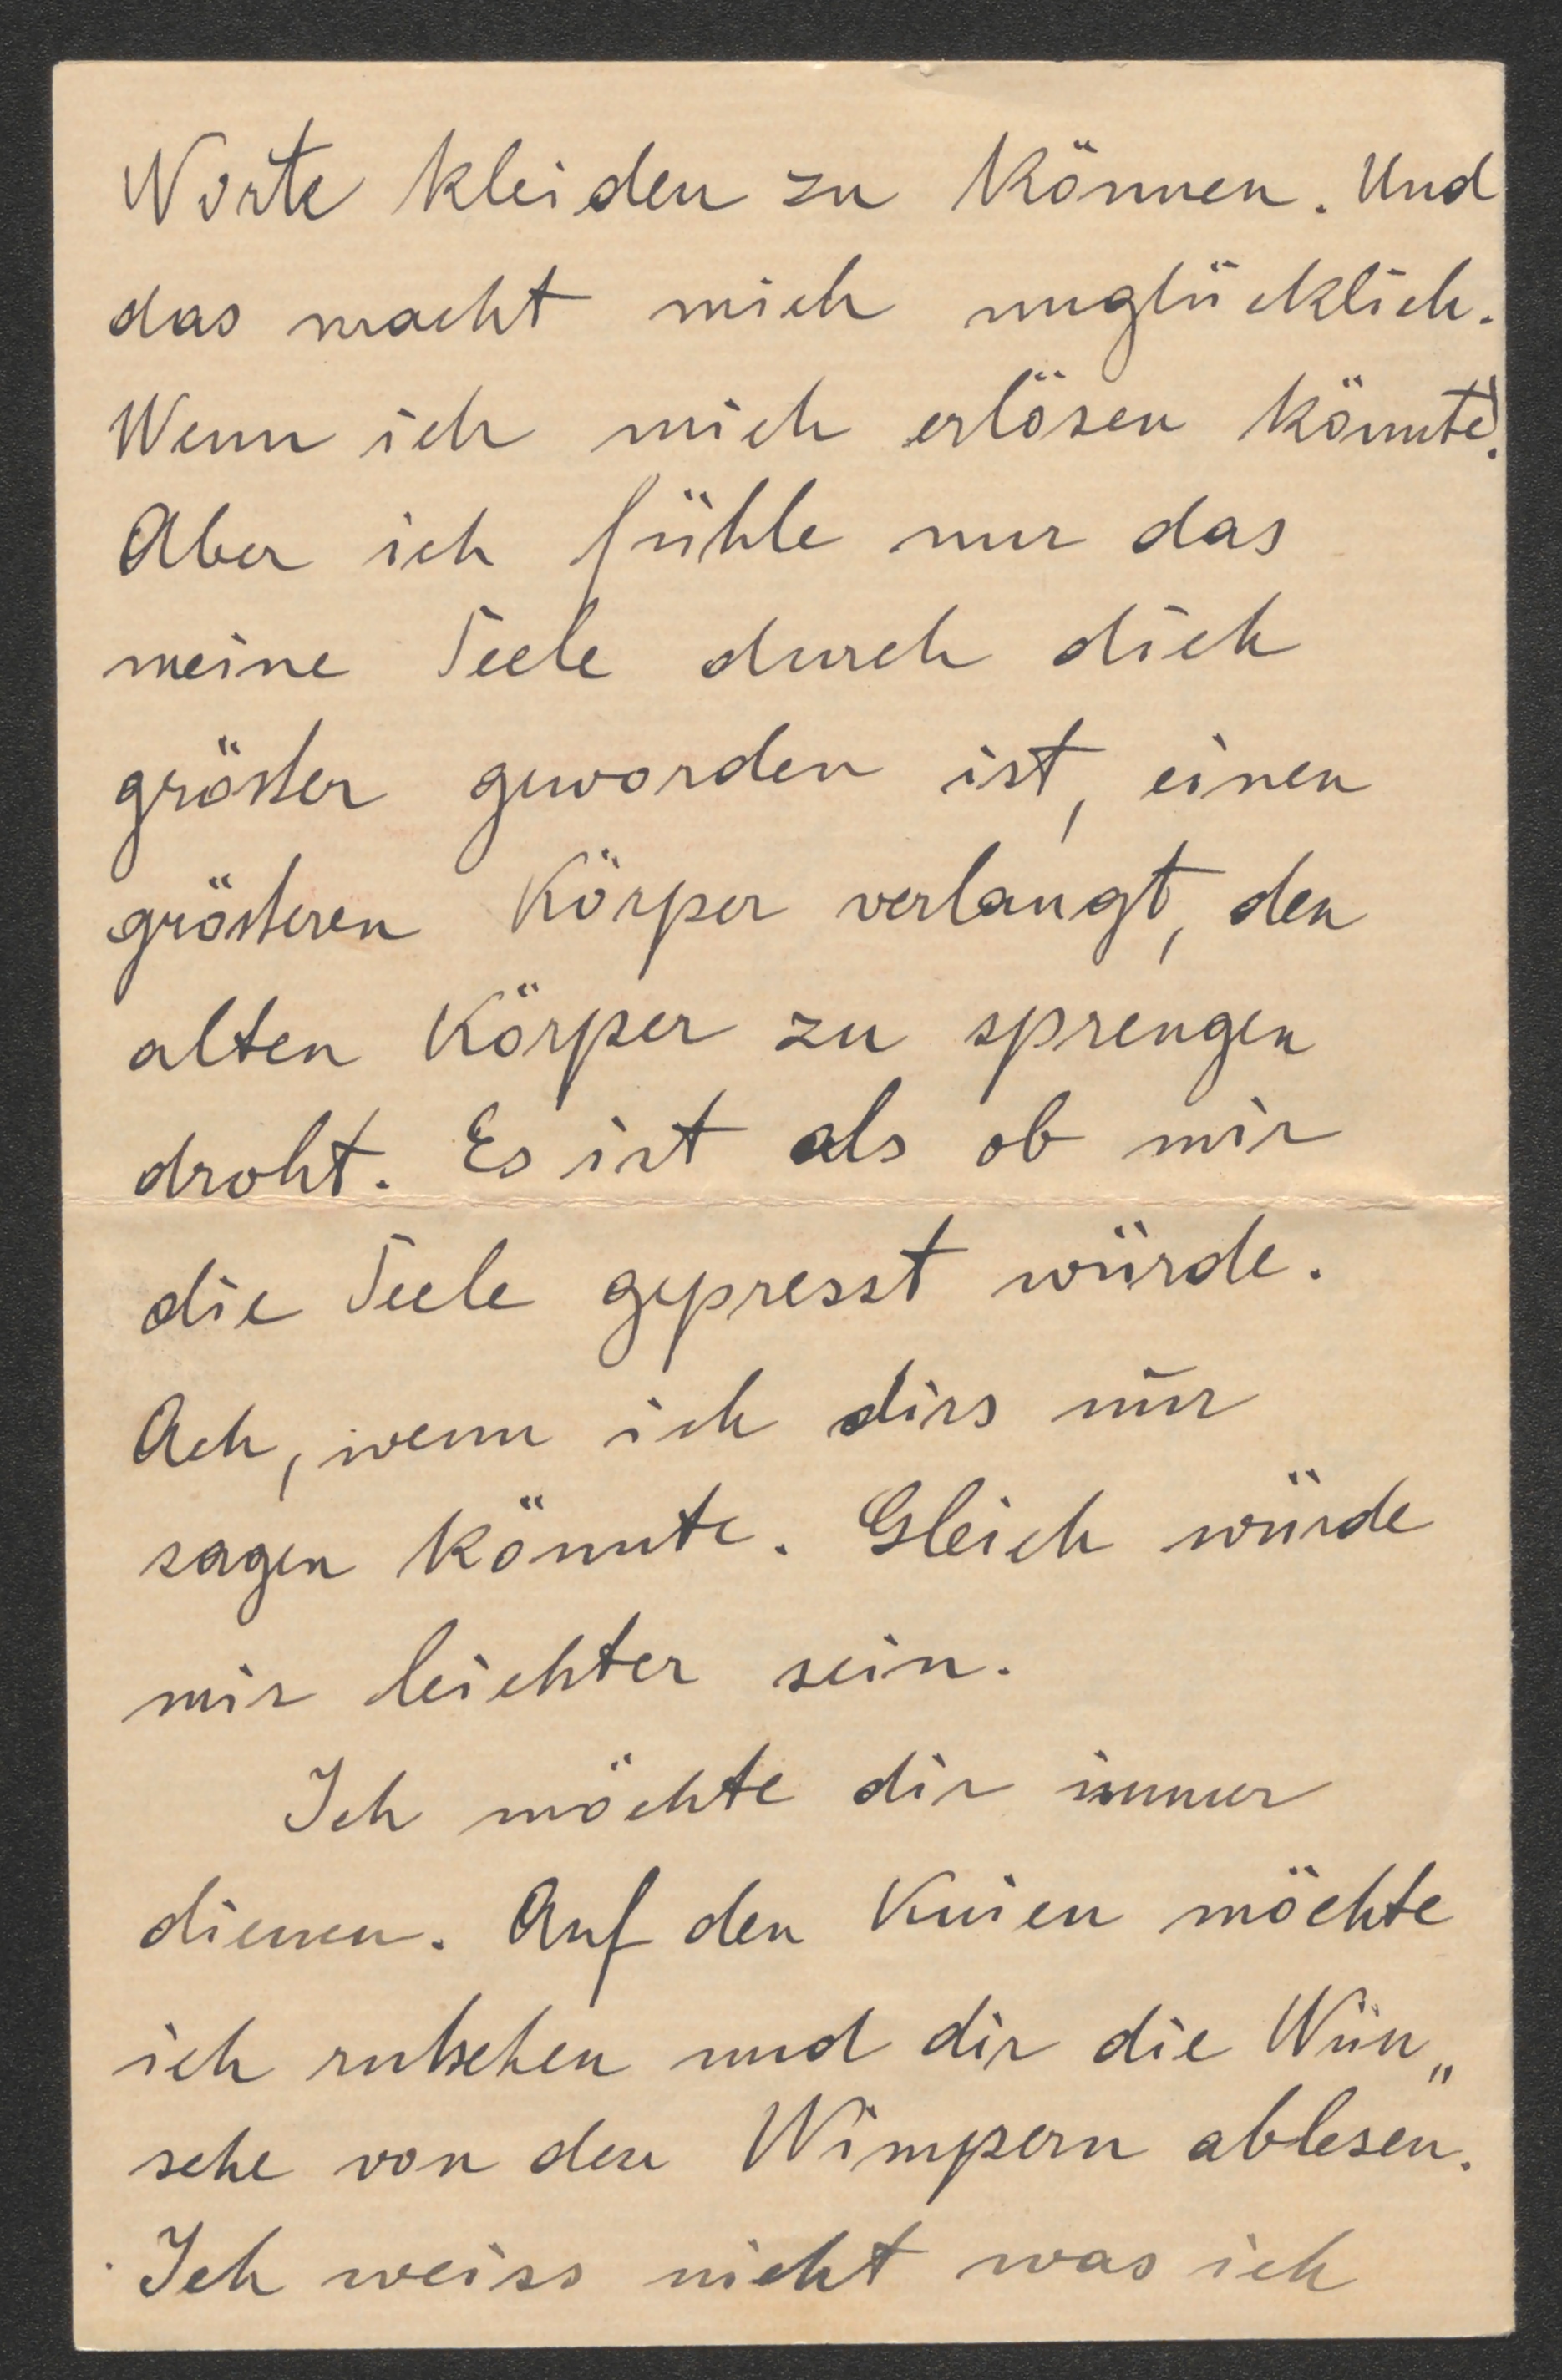 Worte kleiden zu können. Und
das macht mich unglücklich.
Wenn ich mich erlösen könnte!
Aber ich fühle nur das
meine Seele durch dich
größer geworden ist, einen
größeren Körper verlangt, den
alten Körper zu sprengen
droht. Es ist als ob mir
die Seele gepresst würde.
Ach, wenn ich dirs nur
sagen könnte. Gleich würde
mir leichter sein.
Ich möchte dir immer
dienen. Auf den Knien möchte
ich rutschen und dir die Wün„
sche von den Wimpern ablesen.
Ich weiss nicht was ich